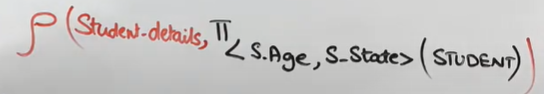 ρ(Student-details, π<S.Age, S-State>(STUDENT))